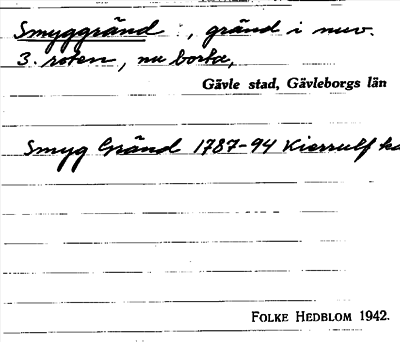 Smyggränd , gränd i nuv.
3. roten, nu borta,
Gävle stad, Gävleborgs län
Smyg Gränd 1787-94 Kierrulf
FOLKE HEDBLOM 1942.